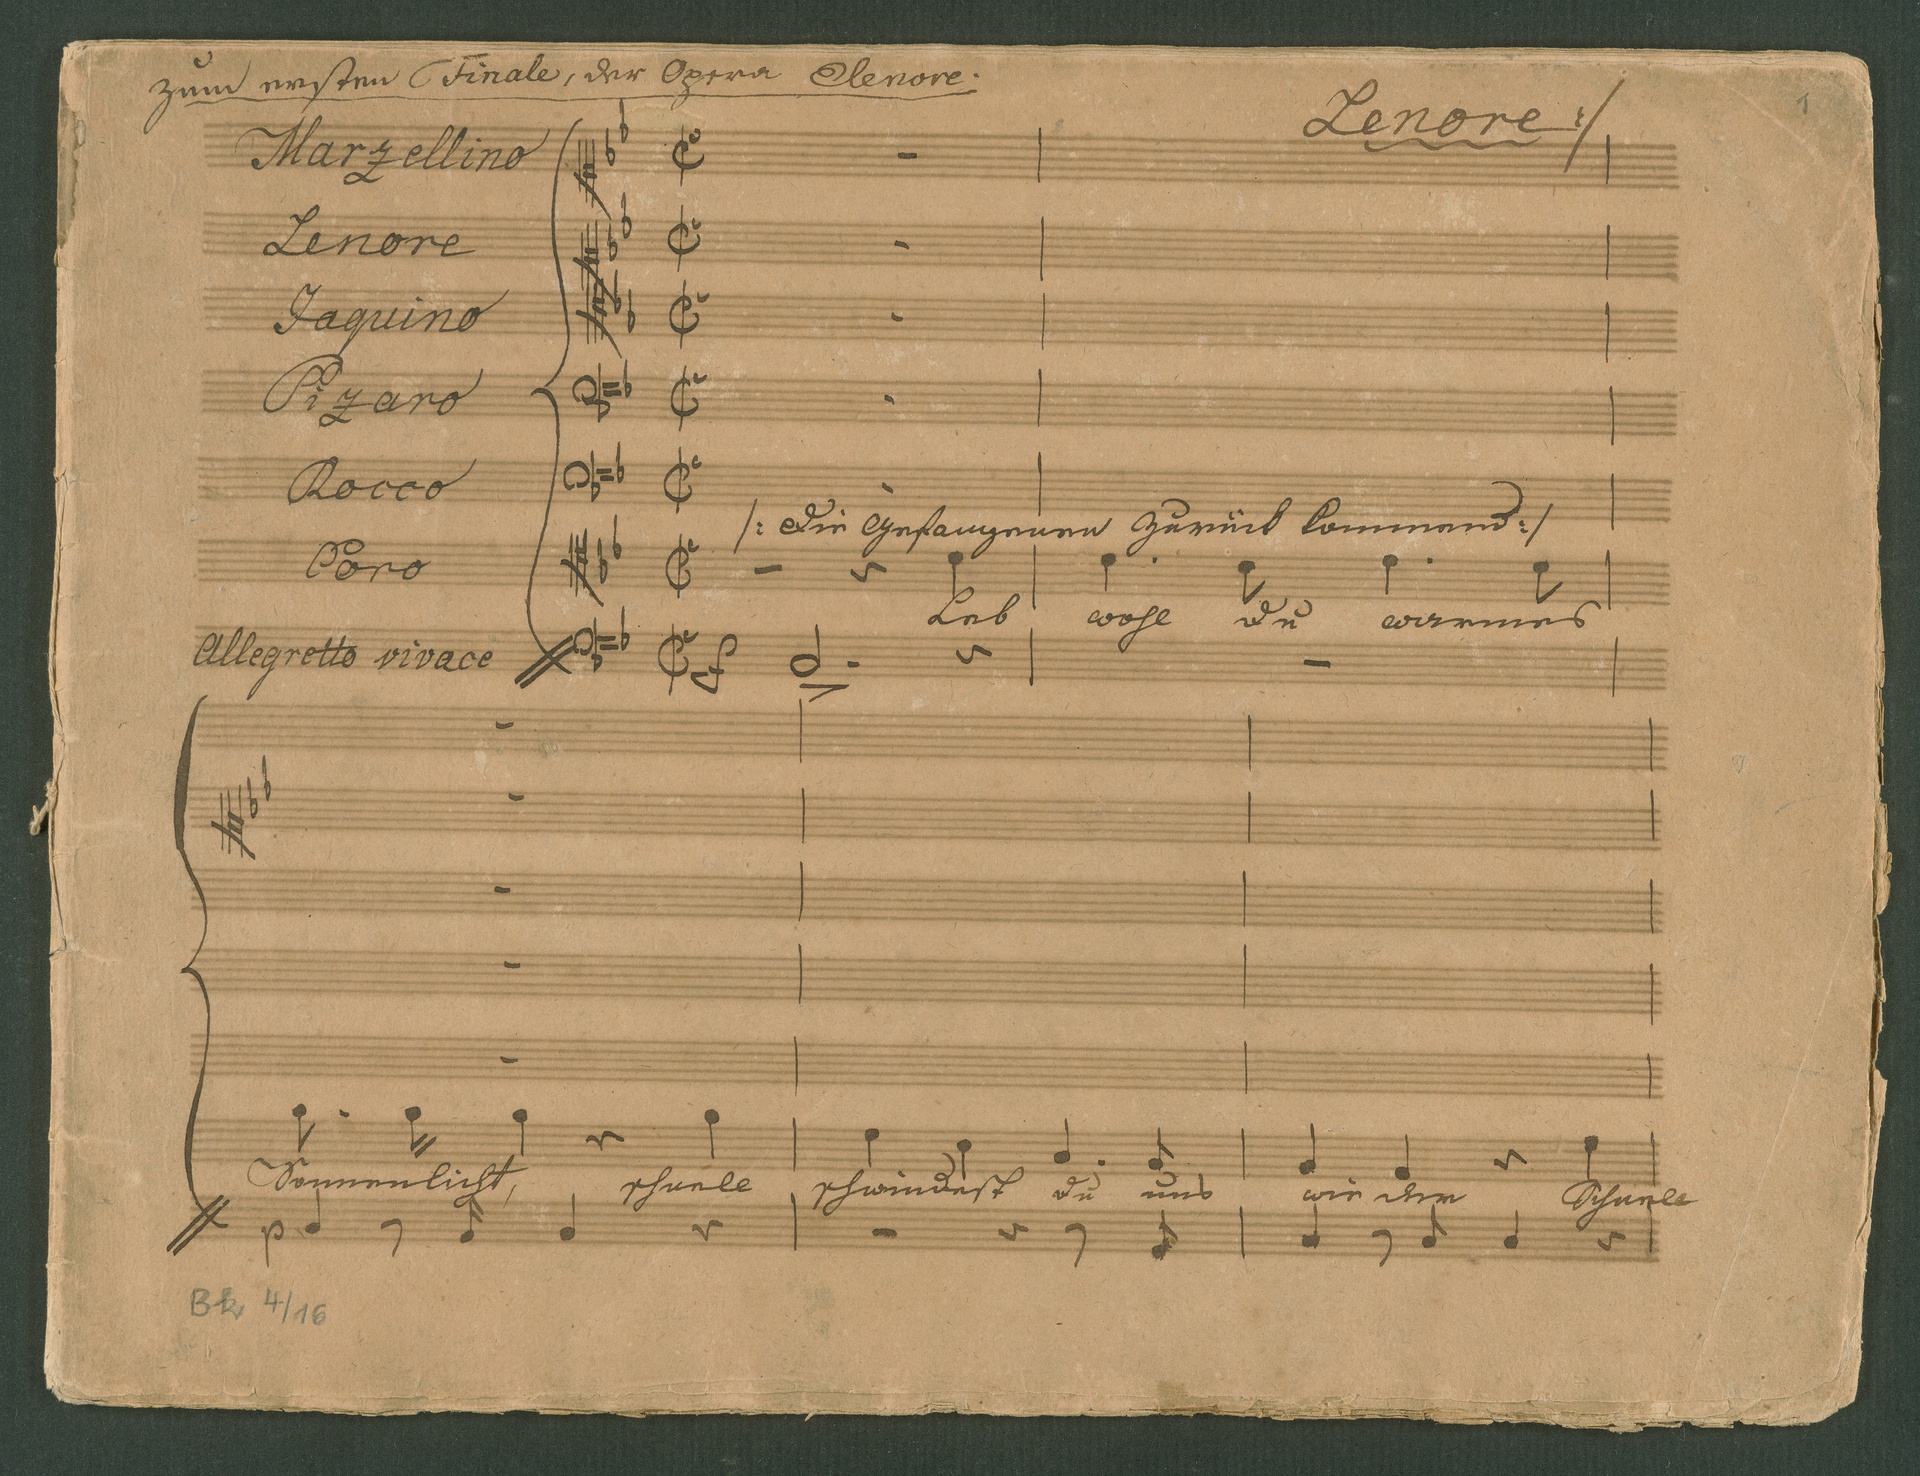 zum ersten Finale, der Opera Lenore.
Lenore :/
1
Marzellino
Lenore
Jaquino
Pizaro
Rocco
/: die Gefangenen zurück kommend :/
Coro
Leb wohl du warmes
Allegretto vivace
Sonnenlicht, schnell schwindest du uns wieder Schnell
p
Bk 4/16